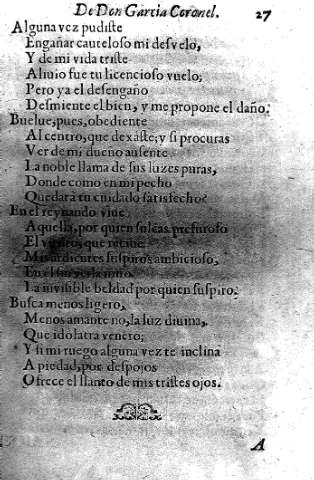 De Don Garcia Coronel. 27
Alguna vez pudiste
Engañar cauteloso mi desvelo,
Y de mi vida triste
Aliuio fue tu licencioso vuelo;
Pero ya el desengaño
Desmiente el bien, y me propone el daño.
Buelue, pues, obediente
Al centro, que dexaste; y si procuras
Ver de mi dueño ausente
La noble llama de sus luzes puras,
Donde como en mi pecho
Quedarà tu cuidado satisfecho?
En el reynando viue
Aquella, por quien sulcas presuroso
El viento, que reciue
Mis ardientes suspiros ambicioso,
En el
La inuisible beldad por quien suspiro.
Busca menos ligero,
Menos amante no, la luz diuina,
Que idolatra venero;
Y si mi ruego alguna vez te inclina
A piedad, por despojos
Ofrece el llanto de mis tristes ojos.
A